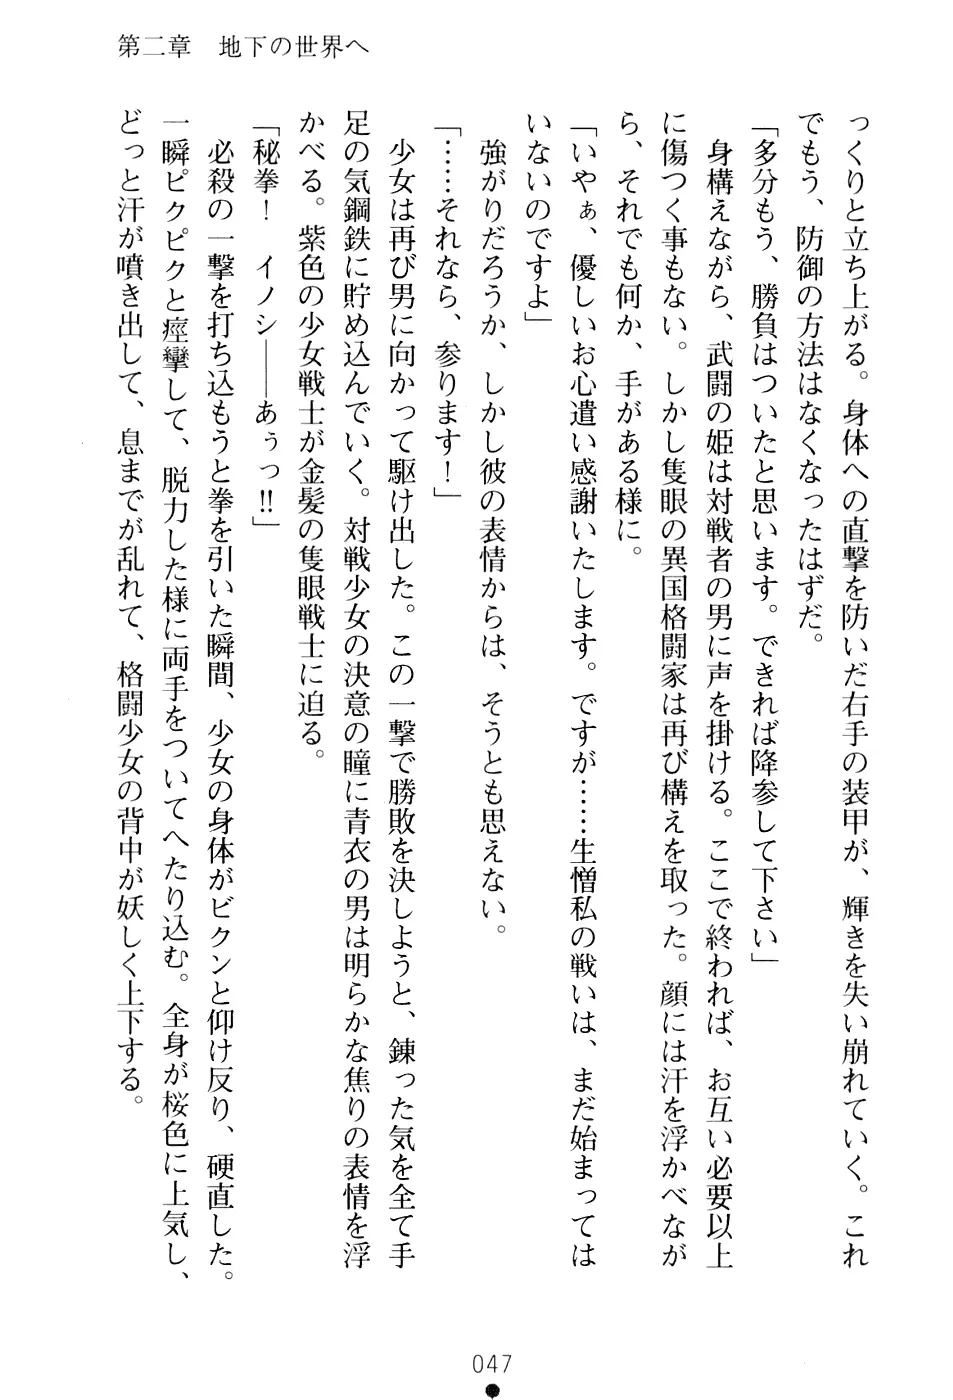 第二章　地下の世界へ
っくりと立ち上がる。身体への直撃を防いだ右手の装甲が、輝きを失い崩れていく。これ
でもう、防御の方法はなくなったはずだ。
「多分もう、勝負はついたと思います。できれば降参して下さい」
　身構えながら、武闘の姫は対戦者の男に声を掛ける。ここで終われば、お互い必要以上
に傷つく事もない。しかし隻眼の異国格闘家は再び構えを取った。顔には汗を浮かべなが
ら、それでも何か、手がある様に。
「いやぁ、優しいお心遣い感謝いたします。ですが……生憎私の戦いは、まだ始まっては
いないのですよ」
　強がりだろうか、しかし彼の表情からは、そうとも思えない。
「……それなら、参ります！」
　少女は再び男に向かって駆け出した。この一撃で勝敗を決しようと、錬った気を全て手
足の気鋼鉄に貯め込んでいく。対戦少女の決意の瞳に青衣の男は明らかな焦りの表情を浮
かべる。紫色の少女戦士が金髪の隻眼戦士に迫る。
「秘拳！　イノシ――あぅっ!!」
　必殺の一撃を打ち込もうと拳を引いた瞬間、少女の身体がビクンと仰け反り、硬直した。
一瞬ピクピクと痙攣して、脱力した様に両手をついてへたり込む。全身が桜色に上気し、
どっと汗が噴き出して、息までが乱れて、格闘少女の背中が妖しく上下する。
047